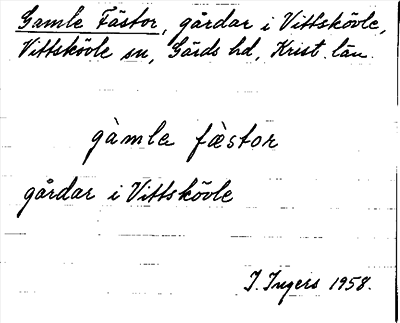 Gamle Fästor, gårdar i Vittskövle,
Vittskövle sn, Gärds hd, Krist. län.
gàmle fæ̀stor
gårdar i Vittskövle
I. Ingers 1958.